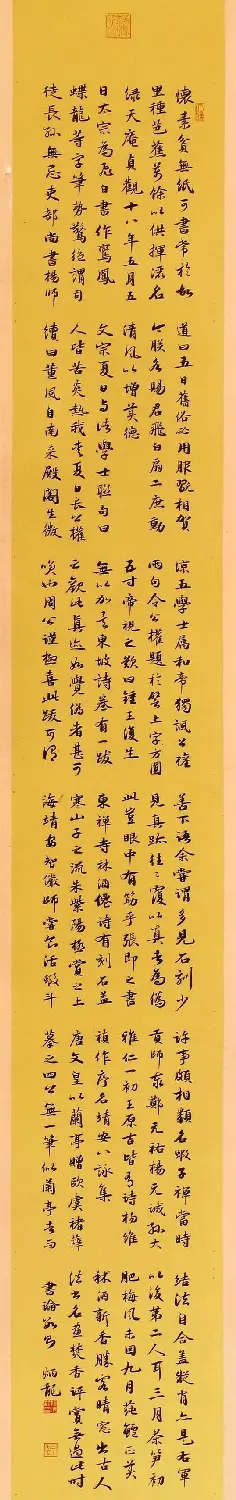 懷素貧無紙可書常於故
里種芭蕉萬餘以供揮灑名
綠天庵貞觀十八年五月五
日太宗為飛白書作鸞鳳
蝶龍等字筆勢驚絕謂司
徒長孫無忌吏部尚書楊師
道曰五日舊俗必用服翫相賀
今朕各賜君飛白扇二庶動
清風以增美德
文宗夏日與諸學士聯句曰
人皆苦炎熱我愛夏日長公權
續曰薰風自南來殿閣生微
涼五學士屬和帝獨諷公權
兩句令公權題於壁上字方圓
五寸帝視之歎曰鍾王復生
無以加焉東坡詩卷有一跋
云觀此真迹如覺偽者甚可
笑也周公謹極喜此跋可謂
善下語余嘗謂多見石刻少
見真跡往往覆以真者為偽
此豈眼中有筋乎張即之書
東禪寺林酒僊詩有刻石蓋
寒山子之流朱紫陽極賞之上
海靖安智儼師嘗食活蝦斗
許事頗相類名蝦子禪當時
貢師泰鄭元祐楊元誠孫大
雅仁一初王原吉皆有詩楊維
禎作序名靖安八詠集
唐文皇以蘭亭贈歐虞褚薛
摹之四公無一筆似蘭亭者而
結法自合蓋凝肖亦是右軍
以後第二人耳三月茶筍初
肥梅風未困九月蓴鱸正美
秫酒新香勝客晴窗出古人
法書名畫焚香評賞無過此時
書論數則 炳龍